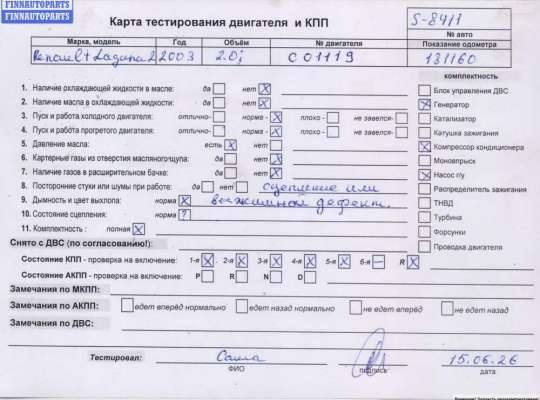 FINNAUTOPARTS
FINNAUTOPARTS
Карта тестирования двигателя и КПП
S-8411
№ авто
Марка, модель Год Объём № двигателя Показание одометра
Renault Laguna 2 2003 2.0i C01119 131160
комплектность
1. Наличие охлаждающей жидкости в масле: да нет X
2. Наличие масла в охлаждающей жидкости: да нет X
3. Пуск и работа холодного двигателя: отлично- норма - X плохо - не завелся-
4. Пуск и работа прогретого двигателя: отлично- норма - X плохо - не завелся-
5. Давление масла: есть X нет
6. Картерные газы из отверстия масляного щупа: да нет X
7. Наличие газов в расширительном бачке: да нет X
8. Посторонние стуки или шумы при работе: да нет сцепление или
9. Дымность и цвет выхлопа: норма X выжимной дефект.
10. Состояние сцепления: норма ?
11. Комплектность : полная X
Блок управления ДВС
X Генератор
Катализатор
Катушка зажигания
X Компрессор кондиционера
Моновпрыск
X Насос г/у
Распределитель зажигания
ТНВД
Турбина
Форсунки
Проводка двигателя
Снято с ДВС (по согласованию!):
Состояние КПП - проверка на включение: 1-я X 2-я X 3-я X 4-я X 5-я X 6-я — R X
Состояние АКПП - проверка на включение: P R N D
Замечания по МКПП:
Замечания по АКПП: едет вперёд нормально едет назад нормально не едет вперёд не едет назад
Замечания по ДВС:
Тестировал: Саша 15.06.26
ФИО подпись дата